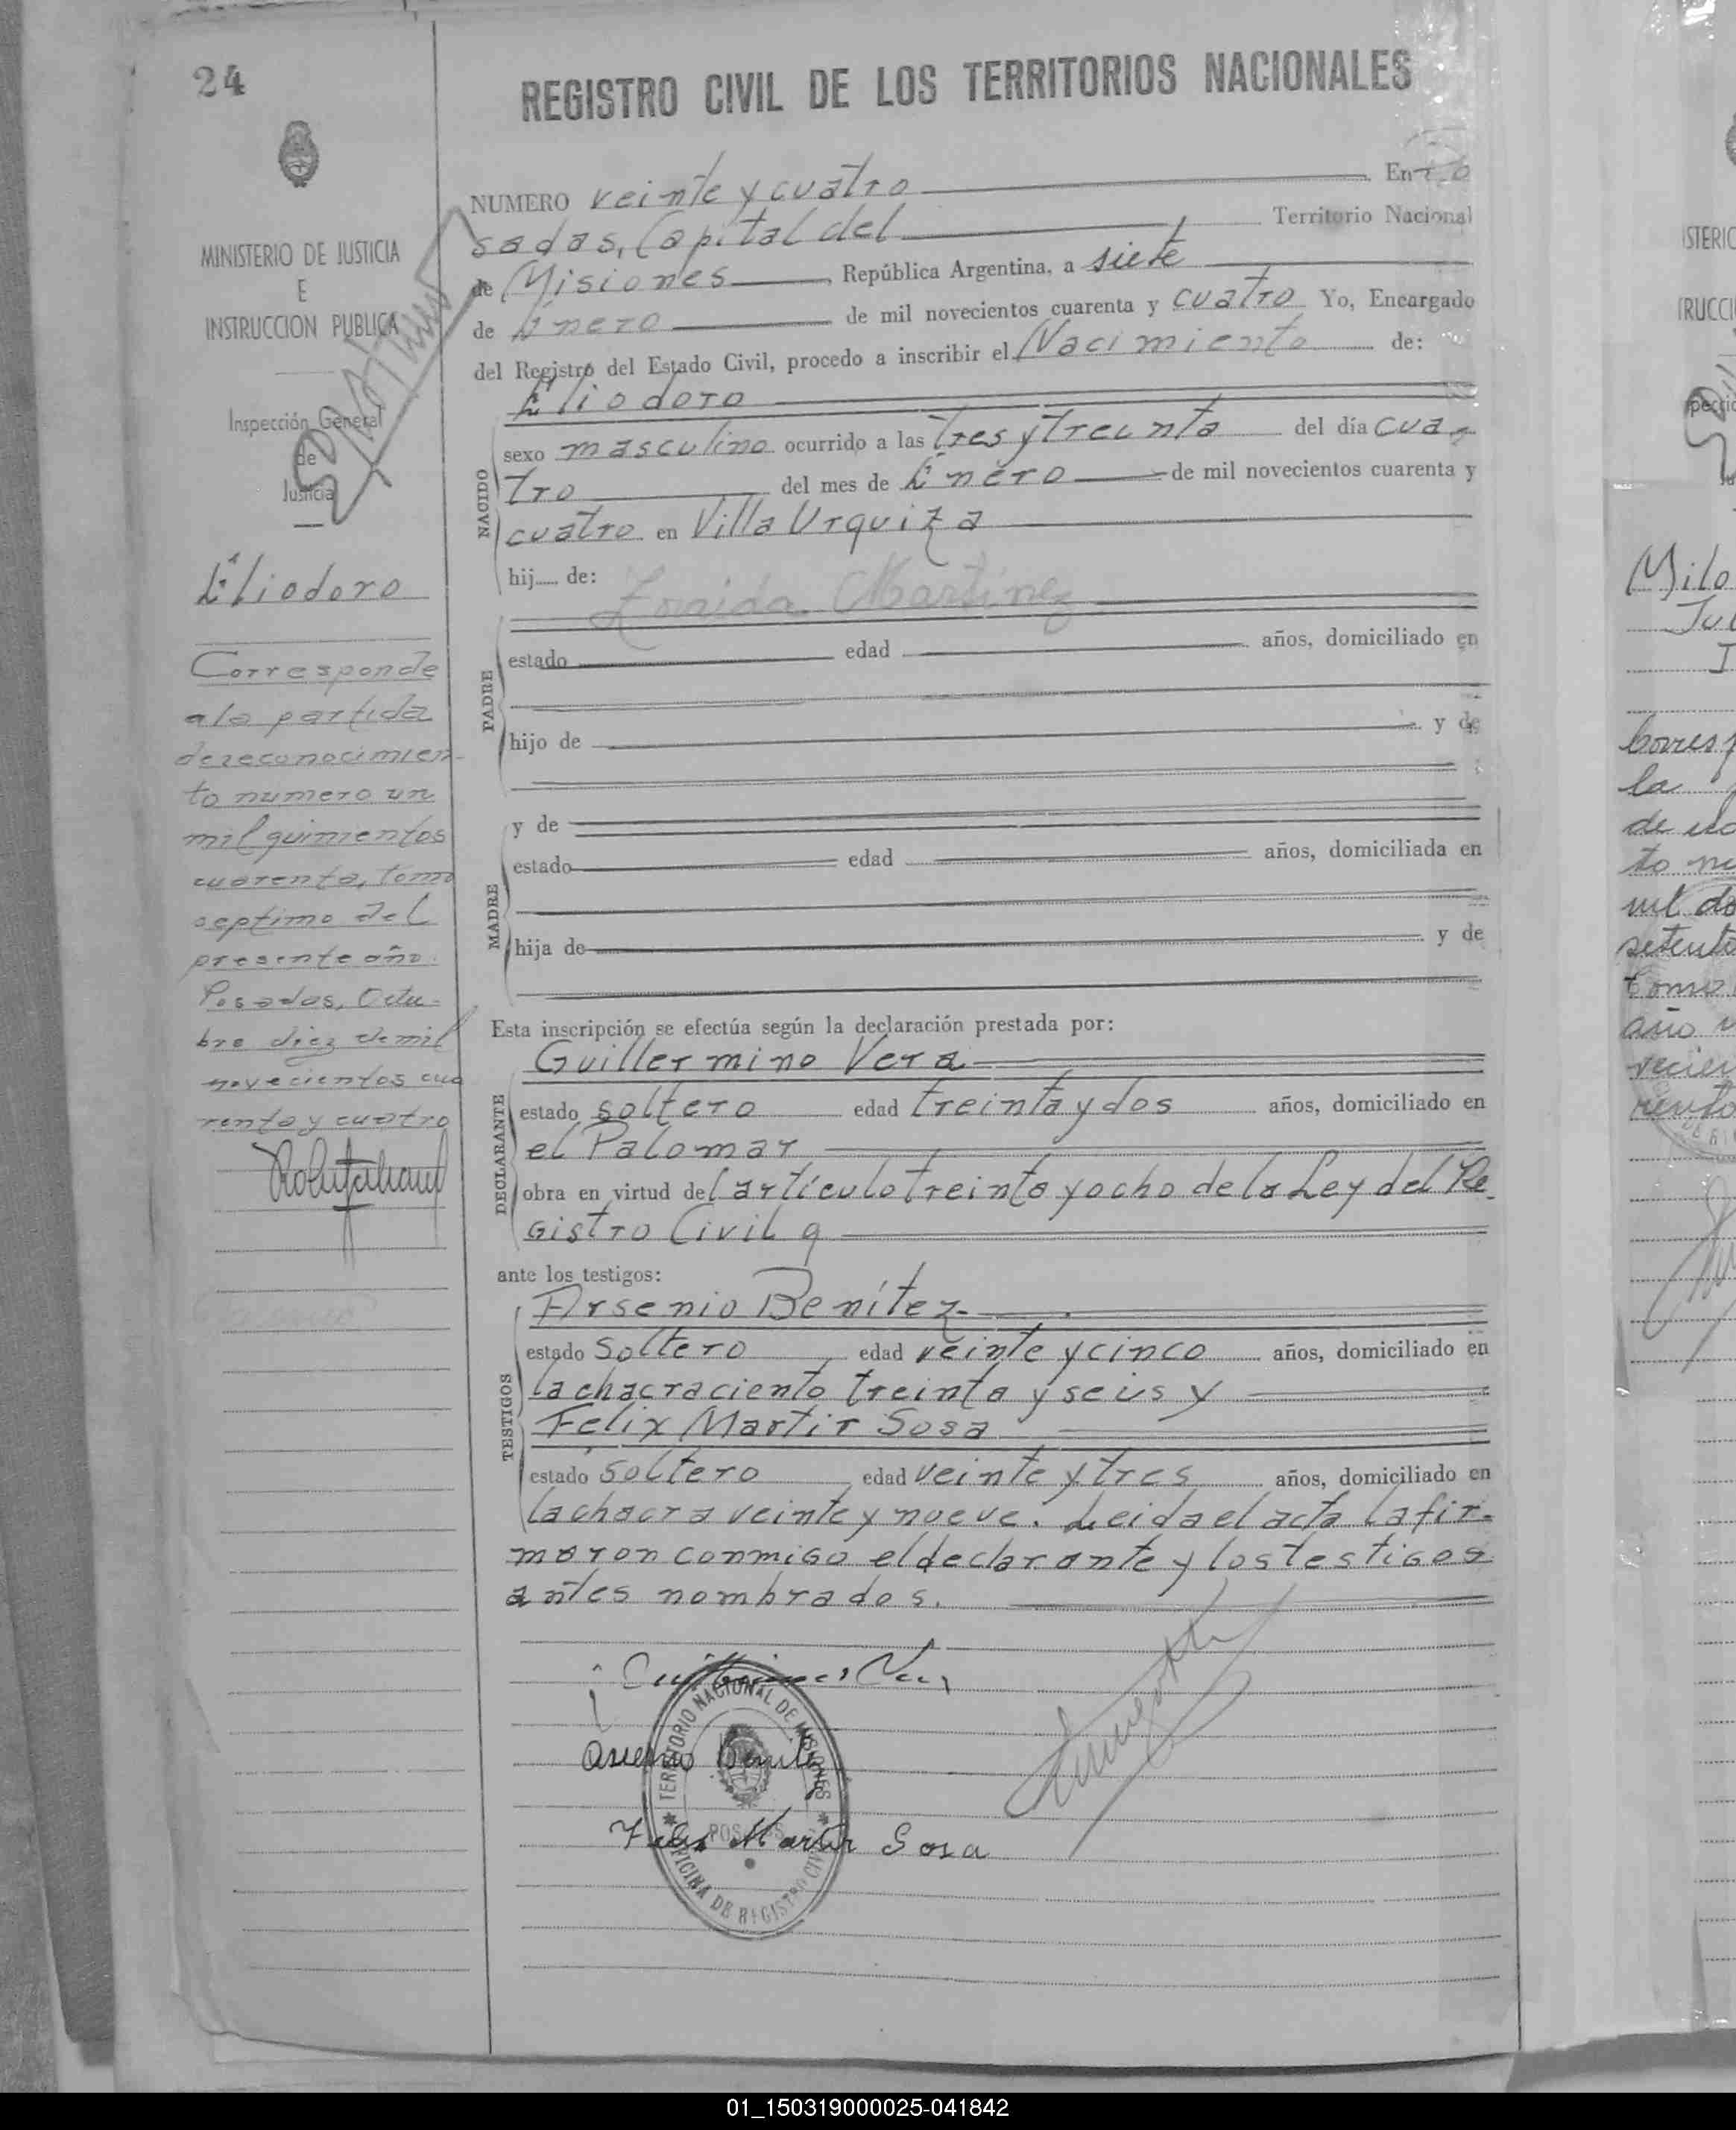 24
REGISTRO CIVIL DE LOS TERRITORIOS NACIONALES
MINISTERIO DE JUSTICIA
E
INSTRUCCION PUBLICA
Inspección General
de
Justicia
Eliodoro
Corresponde
a la partida
de reconocimien-
to numero un
mil quinientos
cuarenta, tomo
septimo del
presente año.
Posadas, Octu-
bre diez de mil
novecientos cua
renta y cuatro
NUMERO veinte y cuatro En Po
sadas, Capital del Territorio Nacional
de Misiones, República Argentina, a siete
de Enero de mil novecientos cuarenta y cuatro Yo, Encargado
del Registro del Estado Civil, procedo a inscribir el Nacimiento de:
NACIDO
Eliodoro
sexo masculino ocurrido a las tres y treinta del día cua-
tro del mes de Enero de mil novecientos cuarenta y
cuatro en Villa Urquiza
hij de:
Zoraida Martinez
PADRE
estado edad años, domiciliado en
hijo de y de
MADRE
y de
estado edad años, domiciliada en
hija de y de
Esta inscripción se efectúa según la declaración prestada por:
DECLARANTE
Guillermino Vera
estado soltero edad treinta y dos años, domiciliado en
el Palomar
obra en virtud del artículo treinta y ocho de la Ley del Re-
gistro Civil y
ante los testigos:
TESTIGOS
Arsenio Benítez
estado soltero edad veinte y cinco años, domiciliado en
la chacra ciento treinta y seis y
Felix Martir Sosa
estado soltero edad veinte y tres años, domiciliado en
la chacra veinte y nueve. Leida el acta la fir-
maron conmigo el declarante y los testigos
antes nombrados.
Arsenio Benitez
Felix Martir Sosa
TERRITORIO NACIONAL DE MISIONES
POSADAS
OFICINA DE REGISTRO CIVIL
01_150319000025-041842